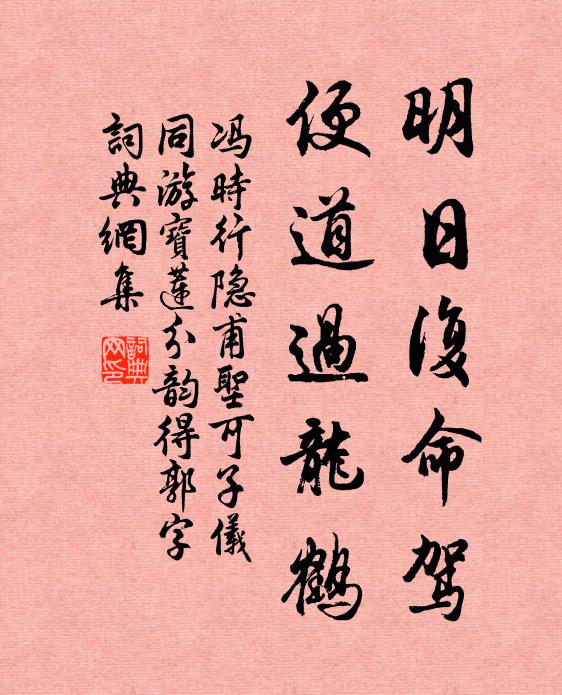 明日復命駕
便道過龍鶴
馮時行隐甫聖可子儀
同游寶蓮分韵得郭字
詞典網集
詞典网印